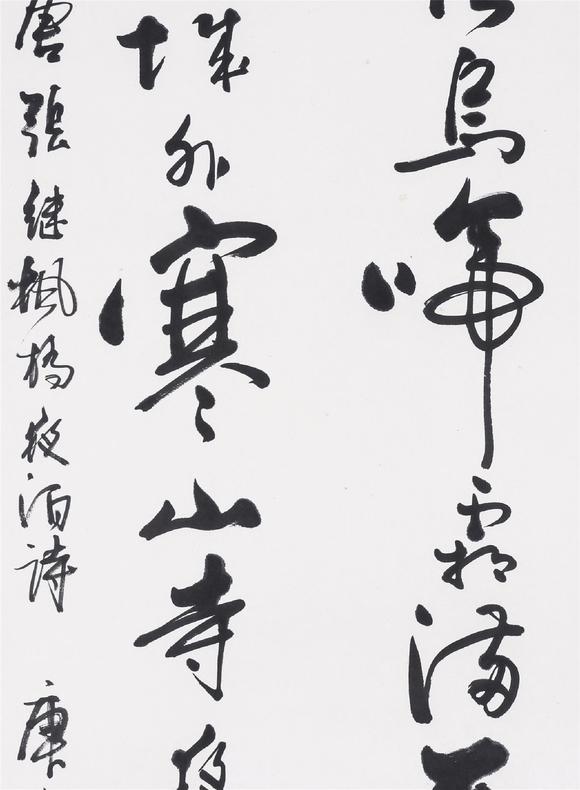 烏啼霜滿天
城外寒山寺夜
唐張继楓橋夜泊詩 庚